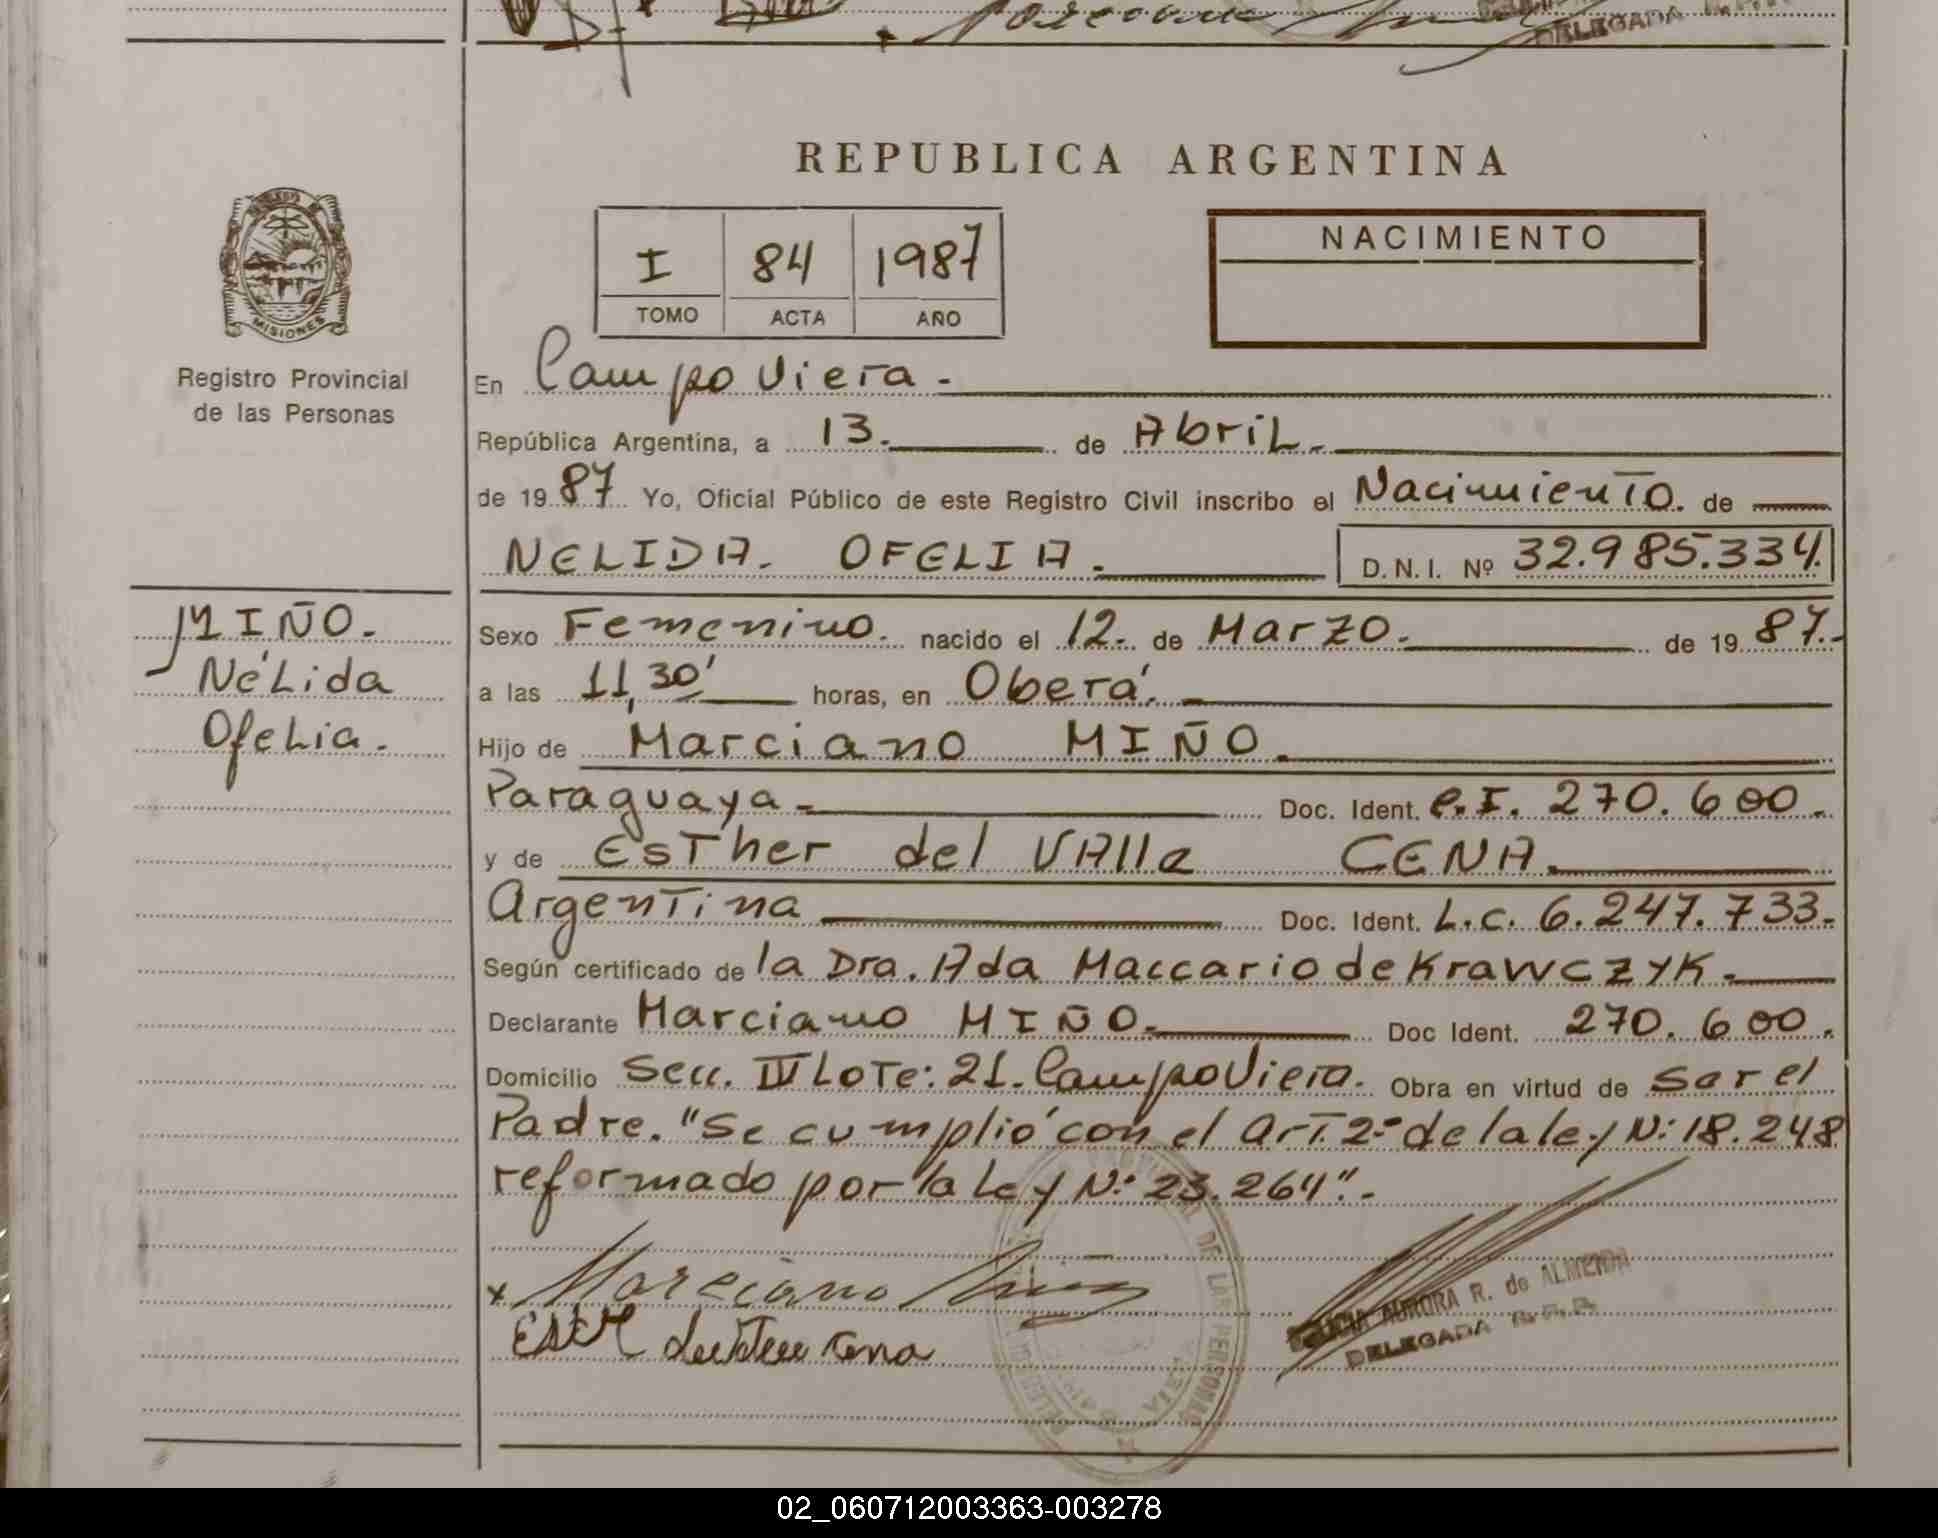 DELEGADA
REPUBLICA ARGENTINA
MISIONES
Registro Provincial
de las Personas
I 84 1987
TOMO ACTA AÑO
NACIMIENTO
En Campo Viera.
República Argentina, a 13. de Abril.
de 1987 Yo, Oficial Público de este Registro Civil inscribo el Nacimiento. de
NELIDA. OFELIA. D.N.I. Nº 32.985.334.
MIÑO.
Nélida
Ofelia.
Sexo Femenino. nacido el 12. de Marzo. de 1987.
a las 11,30' horas, en Oberá.
Hijo de Marciano MIÑO.
Paraguaya Doc. Ident. C.I. 270.600.
y de Esther del VAlle CENA.
Argentina Doc. Ident. L.C. 6.247.733.
Según certificado de la Dra. Ada Maccario de Krawczyk.
Declarante Marciano MIÑO. Doc Ident. 270.600.
Domicilio Secc. IV Lote: 21. Campo Viera. Obra en virtud de Ser el
Padre. "Se cumplió con el Art. 2º de la ley N: 18.248
reformado por la Ley N: 23.264".
x Marciano Miño
Esther del Valle Cena
AURORA R. de ALMEIDA
DELEGADA
DE LAS PERSONAS
02_060712003363-003278